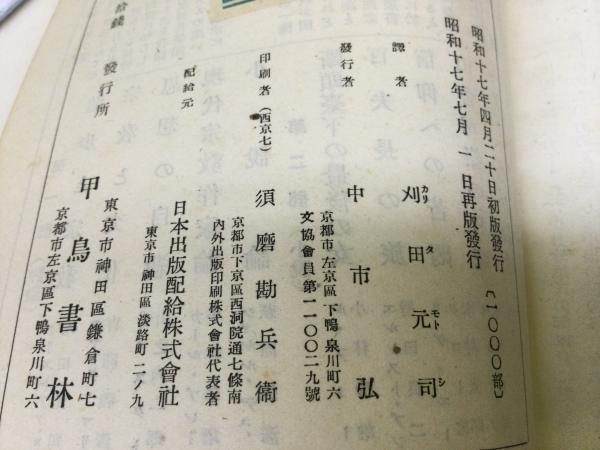 昭和十七年四月二十日初版發行
昭和十七年七月 一 日再版發行 (一〇〇〇部)
譯者 刈田元司
カリ タ モト シ
發行者 中市弘
京都市左京區下鴨泉川町六
文協會員第一一〇〇二九號
印刷者 (西京七) 須磨勘兵衞
京都市下京區西洞院通七條南
內外出版印刷株式會社代表者
配給元 日本出版配給株式會社
東京市神田區淡路町二ノ九
發行所 甲鳥書林
東京市神田區鎌倉町七
京都市左京區下鴨泉川町六
拾錢